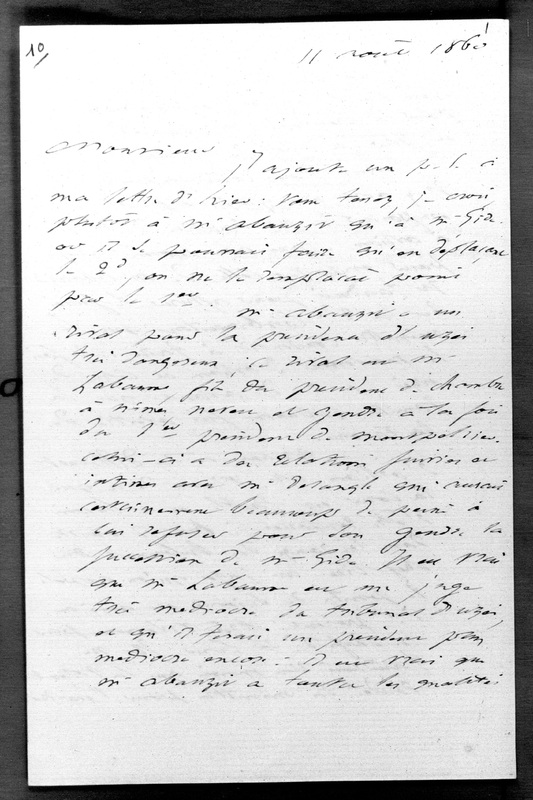 10/
11 août 186
Monsieur
J'ajoute un p. s. à
ma lettre d'hier : vous tenez, je crois,
plutôt à Mr abauzit qu'à Mr Gide.
or il se pourrait faire qu'en déplaçant
le 2d, on ne le remplacât point
par le 1er.
Mr abauzit a un
rival pour la présidence d'uzès
très dangereux ; ce rival est Mr
Labaume, fils du président de chambre
à nîmes, neveu et gendre à la fois
du 1er président de montpellier.
celui-ci a des relations suivies et
intimes avec Mr delangle qui aurait
certainement beaucoup de peine à
lui refuser pour son gendre la
succession de Mr Gide. Il est vrai
que Mr Labaume est un juge
très médiocre du tribunal d'uzès,
et qu'il ferait un président plus
médiocre encore. Il est vrai que
Mr abauzit a toutes les qualités